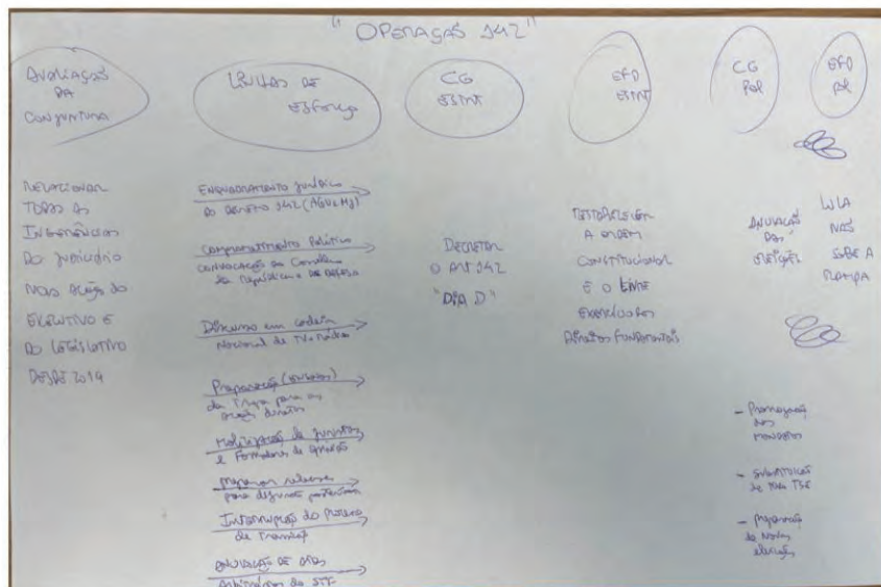 "OPERAÇÃO 142"
AVALIAÇÃO
DA
CONJUNTURA
LINHAS DE
ESFORÇO
CG
ESTNT
EFD
ESTNT
CG
POL
EFD
POL
RELACIONAR
TODAS AS
INGERÊNCIAS
DO JUDICIÁRIO
NAS AÇÕES DO
EXECUTIVO E
DO LEGISLATIVO
DESDE 2019
ENQUADRAMENTO JURÍDICO
DO DECRETO 142 (AGU e MJ)
COMPROMETIMENTO POLÍTICO
CONVOCAÇÃO do Conselho
da República e da DEFESA
Discurso em cadeia
Nacional de TV e Rádio
Preparação
da Tropa para as
ações diretas
Mobilização de juristas
e Formadores de opinião
para
Interrupção do Processo
de Transição
ANULAÇÃO DE ATOS
Arbitrários do STF
DECRETAR
O ART 142
"DIA D"
RESTABELECER
A ORDEM
CONSTITUCIONAL
E O LIVRE
EXERCÍCIO DOS
DIREITOS FUNDAMENTAIS
ANULAÇÃO
DAS
ELEIÇÕES
LULA
NÃO
SOBE A
RAMPA
- Prorrogação
dos
MANDATOS
- SUBSTITUIÇÃO
de todo TSE
- Preparação
de Novas
eleições